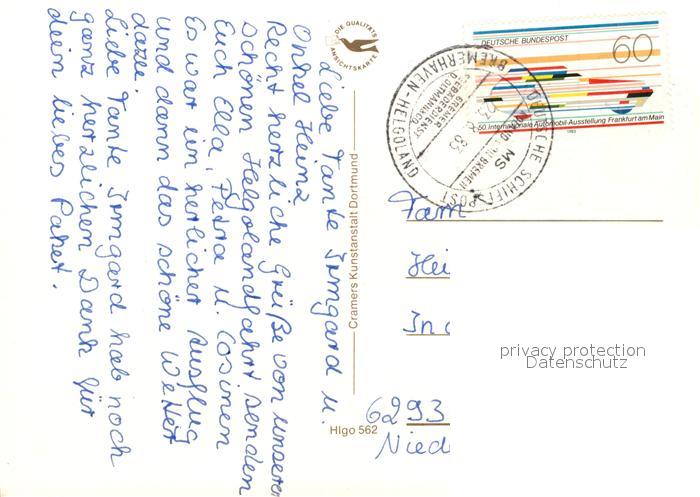 Liebe Tante Irmgard u.
Onkel Heinz
Recht herzliche Grüße von unserer
schönen Helgolandfahrt senden
Euch Ella, Petra u. Cosinem
Es war ein herlicher Ausflug
und dann das schöne Wetter
dazu.
Liebe Tante Irmgard hab noch
ganz herzlichen Dank für
dein liebes Paket.
DIE QUALITÄTS
ANSICHTSKARTE
Cramers Kunstanstalt Dortmund
Hlgo 562
DEUTSCHE BUNDESPOST
60
50. Internationale Automobil-Ausstellung Frankfurt am Main
1983
DEUTSCHE SCHIFFSPOST
MS
BREMERHAVEN-HELGOLAND
BREMER
SEEBÄDERDIENST
83
Fam
Hei
In
6293
Nied
privacy protection
Datenschutz